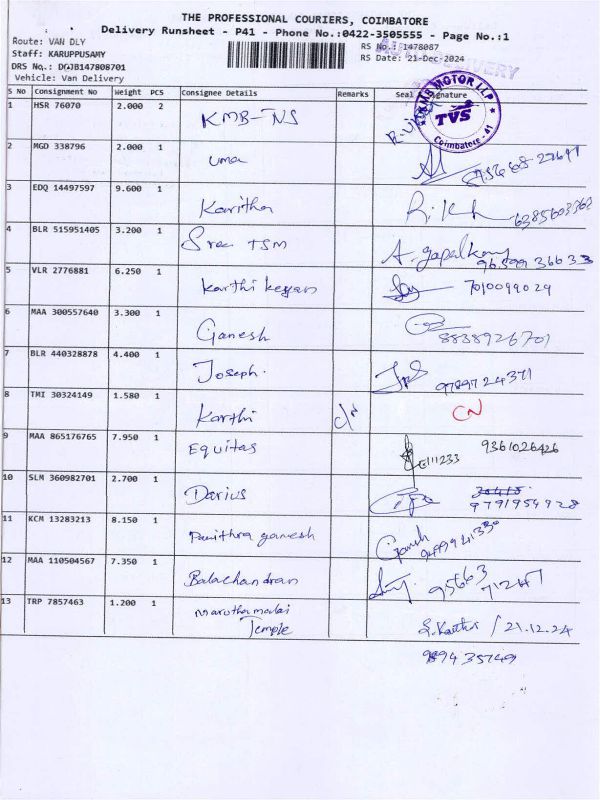 THE PROFESSIONAL COURIERS, COIMBATORE
Delivery Runsheet - P41 - Phone No.:0422-3505555 - Page No.:1
Route: VAN DLY
RS No.: 1478087
Staff: KARUPPUSAMY
RS Date: 21-Dec-2024
DRS No.: DOJB147808701
Vehicle: Van Delivery
S No Consignment No Weight PCS Consignee Details Remarks Seal Signature
1 HSR 76070 2.000 2 KMB-TVS
KMB MOTOR LLP
TVS
Coimbatore - 41
2 MGD 338796 2.000 1 uma
3 EDQ 14497597 9.600 1 Kavitha 6385603762
4 BLR 515951405 3.200 1 Sree TSM A. gopalkany
96 599 366 33
5 VLR 2776881 6.250 1 Karthi keyan 7010099029
6 MAA 300557640 3.300 1 Ganesh 8838926701
7 BLR 440328878 4.400 1 Joseph. 9789724371
8 TMI 30324149 1.580 1 Karthi C/N CN
9 MAA 865176765 7.950 1 EQUITAS E111233 9361026426
10 SLM 360982701 2.700 1 Darius
9791954928
11 KCM 13283213 8.150 1 Pavithra ganesh Ganesh
12 MAA 110504567 7.350 1 Balachandran 95663
71247
13 TRP 7857463 1.200 1 marutha malai
Temple
S. Karthi / 21.12.24
9894 35749